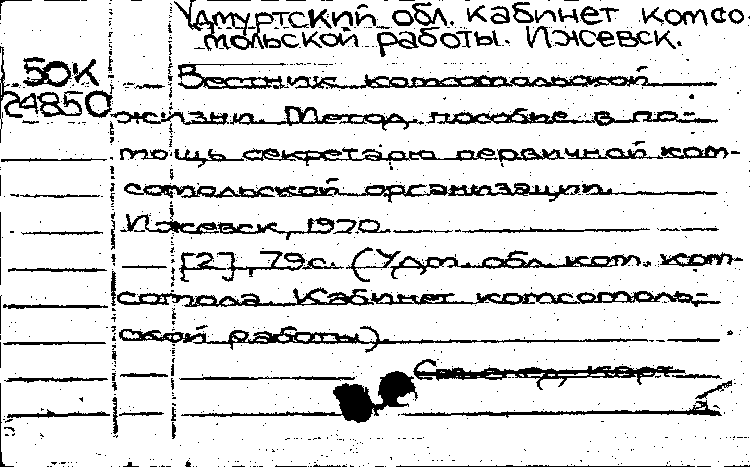 Удмуртский обл. кабинет комсо
мольской работы. Ижевск.
50К Вестник комсомольской
24850 жизни. Метод. пособие в по-
мощь секретарю первичной ком-
сомольской организации.
Ижевск, 1970.
[2], 79с. (Удм. обл. ком. ком-
сомола. Кабинет комсомоль-
ской работы).
См. след. карт